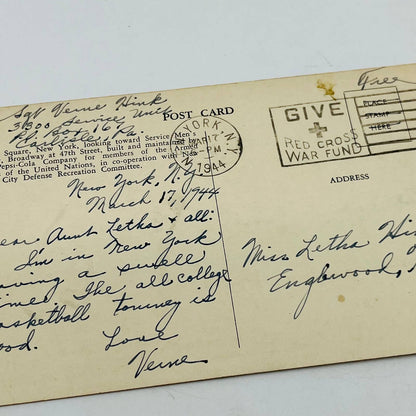 Sgt Verne Hink
3300 Service Unit
P.O. Box 167
Carlisle, Pa.
POST CARD
Free
Square, New York, looking toward Service Men's
Broadway at 47th Street, built and maintained by
Pepsi-Cola Company for members of the Armed
of the United Nations, in co-operation with New
City Defense Recreation Committee.
YORK, N.Y.
MAR 17
PM
1944
GIVE
+
RED CROSS
WAR FUND
PLACE
STAMP
HERE
ADDRESS
New York, N.Y.
March 17, 1944
ear Aunt Letha & all:
I'm in New York
aving a swell
imes. The all college
asketball tourney is
ood.
Love
Verne
Miss Letha Hin
Englewood,